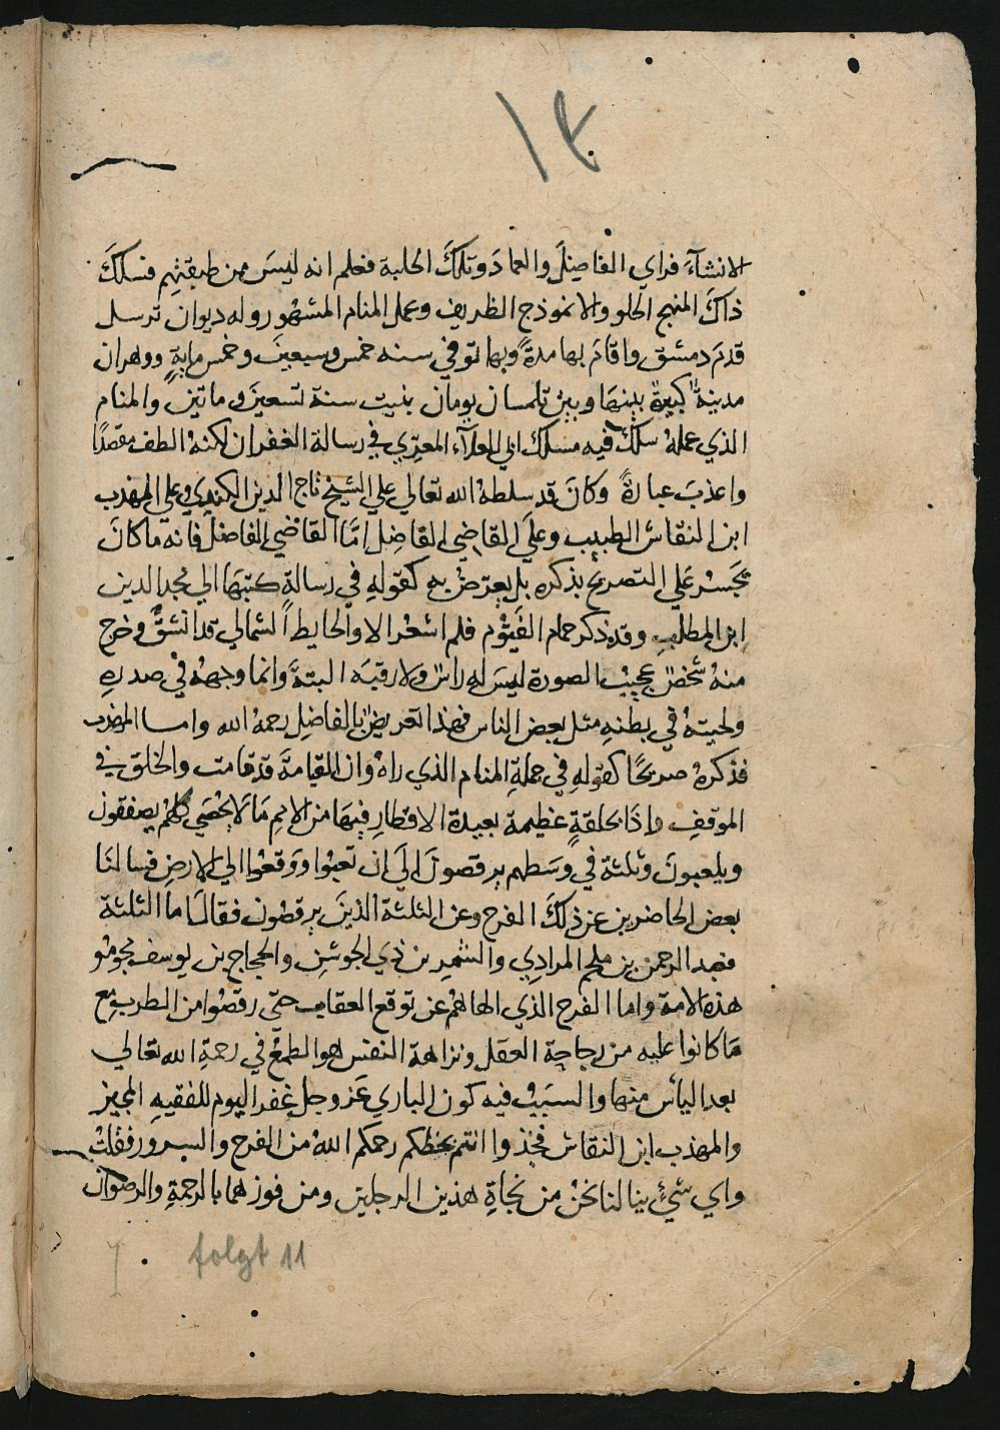 ١٣
الانشآء فراي الفاضلَ والعمادَ وتلكَ الحلبة فعلم انه ليسَ من طبقتهِم فسلكَ
ذاكَ المنهج الحلو والانموذج الظريف وعمل المنام المشهور وله ديوان ترسل
قدمَ دمشق واقامَ بها مدةً وبها توفي سنه خمس وسبعينَ وخمس مايةٍ ووهران
مدينةٌ كبيرةٌ بينهَا وبين تلمسان يومان بنيت سنة تسعينَ وماتين والمنام
الذي عملهُ سلكَ فيه مسلك ابي العلآء المعرّي في رسالة الغفران لكنهُ الطف مقصدًا
واعذبَ عبارةً وكانَ قد سلطهُ الله تعالي علي الشيخ تاج الدين الكندي وعلي المهذب
ابن النقاش الطبيب وعلَي القاضي الفاضِل امّا القاضي الفاضل فانه ماكانَ
يجَسرُ عَلي التصريح بذكره بل يعرّض به كقولهِ في رسالةٍ كتبهَا الي مجد الدين
ابن المطلب وقد ذكر حمام الفَيّوم فلم اشعْر الا والحايط الشمالي قد انشقَّ وخرج
منهُ شخصٌ عجيبُ الصورة ليسَ له راسٌ ولا رقبَه البتةَ وانما وجههُ في صدرهِ
ولحيتهُ في بطنهِ مثل بعض الناس فهذا تعريضٌ بالفاضِل رحمهُ الله واما المهذب
فذكرهُ صريحًا كقولهِ في جملةِ المنام الذي راهُ وان القيامةَ قد قامت والخلق في
الموقفِ واذَا بحلقةٍ عظيمة بعيدة الاقطارِ فيهَا من الامِم مَا لا يحصَي كلهُمْ يصفقون
ويلعبونَ وثلثة في وسَطهم يرقصونَ الَي ان تعبوا ووَقعُوا الي الارضِ فسالنَا
بعض الحاضرين عن ذلكَ الفرح وعن الثلثة الذينَ يرقصون فقال امَا الثلثة
فعبد الرحمن بن ملجم المرادِي والشمِر بن ذي الجوشنِ والحجاج بن يوسف مجرمُو
هذه الامة واما الفرح الذي الهاهُم عن توقع العقاب حتّي رقصُوا من الطربِ مع
مَا كانوا عليه من رجاجة العقل ونزاهة النفس هو الطمعُ في رحمةِ الله تعالي
بعد اليأس منها والسبَبُ فيه كون الباري عَز وجل غفر اليوم للفقيهِ المجيز
والمهذب ابن النقاش فخذوا انتم بحظكم رحمكم اللهُ من الفرح والسرور فقلتْ
واي شئٍ ينالنا نحنُ من نجاةِ هذين الرجلين ومن فوزهما بالرحمةِ والرضوان
folgt 11